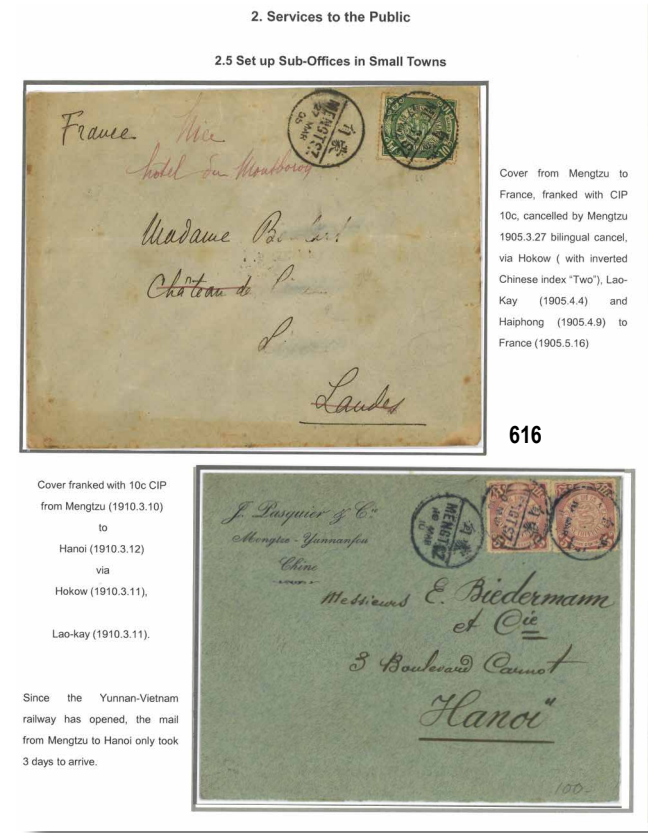 2. Services to the Public
2.5 Set up Sub-Offices in Small Towns
France Nice
hotel du
MENGTSZ
27 MAR
05
蒙自
Madame
Château de
Landes
Cover from Mengtzu to
France, franked with CIP
10c, cancelled by Mengtzu
1905.3.27 bilingual cancel,
via Hokow ( with inverted
Chinese index “Two”), Lao-
Kay (1905.4.4) and
Haiphong (1905.4.9) to
France (1905.5.16)
616
Cover franked with 10c CIP
from Mengtzu (1910.3.10)
to
Hanoi (1910.3.12)
via
Hokow (1910.3.11),
Lao-kay (1910.3.11).
Since the Yunnan-Vietnam
railway has opened, the mail
from Mengtzu to Hanoi only took
3 days to arrive.
J. Pasquier & Cie
Mongtze - Yunnanfou
Chine
MENGTSZ
MAR
10
蒙自
Messieurs E. Biedermann
et Cie
3 Boulevard Carnot
Hanoï
100-